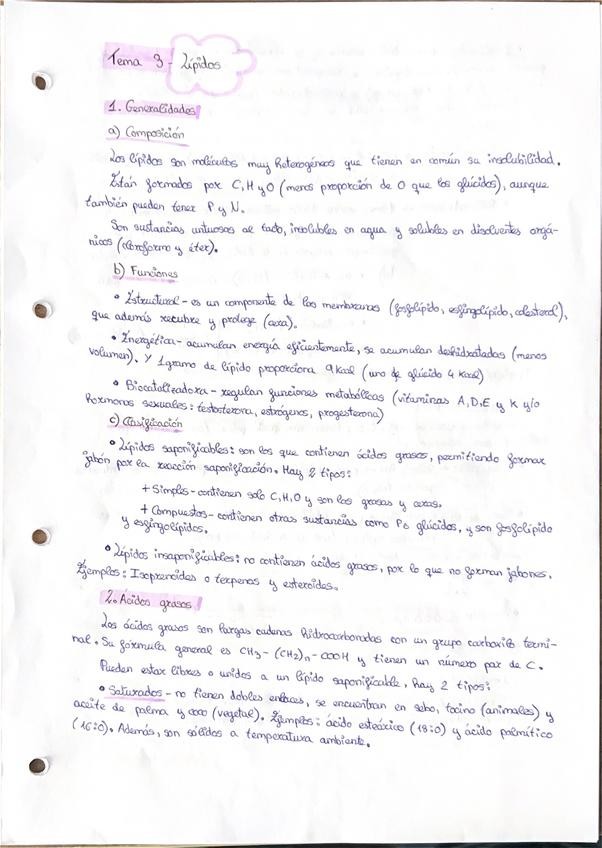 Tema 3 - Lípidos
1. Generalidades
a) Composición
Los lípidos son moléculas muy heterogéneas que tienen en común su insolubilidad.
Están formados por C, H y O (menos proporción de O que los glúcidos), aunque
también pueden tener P y N.
Son sustancias untuosas al tacto, insolubles en agua y solubles en disolventes orgá-
nicos (cloroformo y éter).
b) Funciones
• Estructural - es un componente de las membranas (fosfolípido, esfingolípido, colesterol),
que además recubre y protege (cera).
• Energética - acumulan energía eficientemente, se acumulan deshidratadas (menos
volumen). Y 1 gramo de lípido proporciona 9 Kcal (uno de glúcido 4 Kcal)
• Biocatalizadora - regulan funciones metabólicas (vitaminas A, D, E y K y/o
hormonas sexuales: testosterona, estrógenos, progesterona)
c) Clasificación
• Lípidos saponificables: son los que contienen ácidos grasos, permitiendo formar
jabón por la reacción saponificación. Hay 2 tipos:
+ Simples - contienen solo C, H, O y son las grasas y ceras.
+ Compuestos - contienen otras sustancias como P o glúcidos, y son fosfolípido
y esfingolípidos.
• Lípidos insaponificables: no contienen ácidos grasos, por lo que no forman jabones.
Ejemplos: Isoprenoides o terpenos y esteroides.
2. Ácidos grasos
Los ácidos grasos son largas cadenas hidrocarbonadas con un grupo carboxilo termi-
nal. Su fórmula general es CH₃ - (CH₂)n - COOH y tienen un número par de C.
Pueden estar libres o unidos a un lípido saponificable, hay 2 tipos:
• Saturados - no tienen dobles enlaces, se encuentran en sebo, tocino (animales) y
aceite de palma y coco (vegetal). Ejemplos: ácido esteárico (18:0) y ácido palmítico
(16:0). Además, son sólidos a temperatura ambiente.